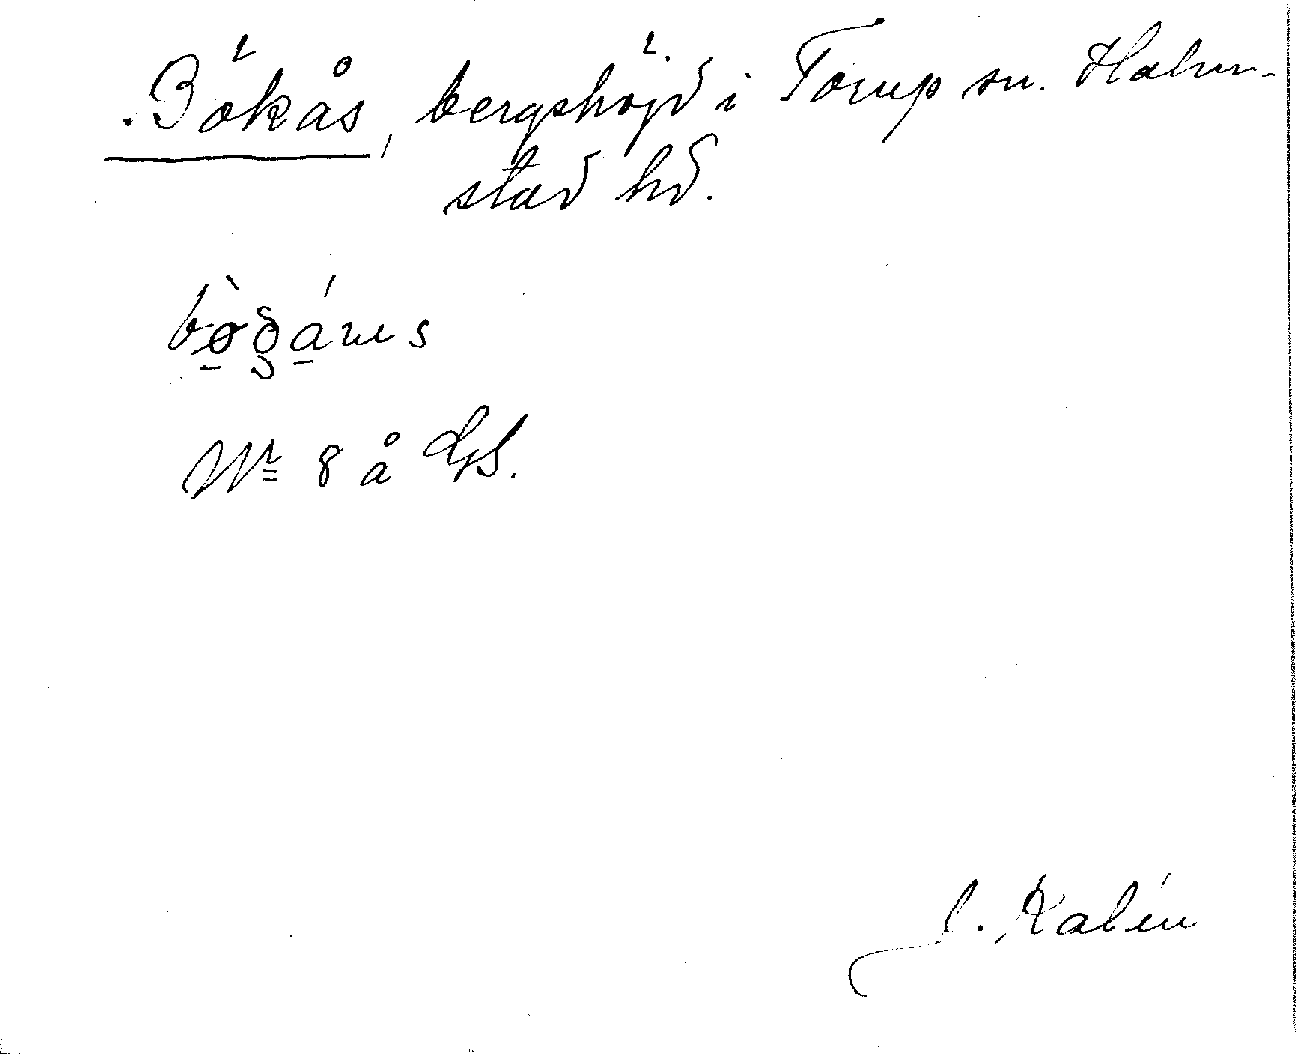 Bökås, bergshöjd i Torup sn. Halm-
stad hd.
Nr 8 å GS.
J. Kalén